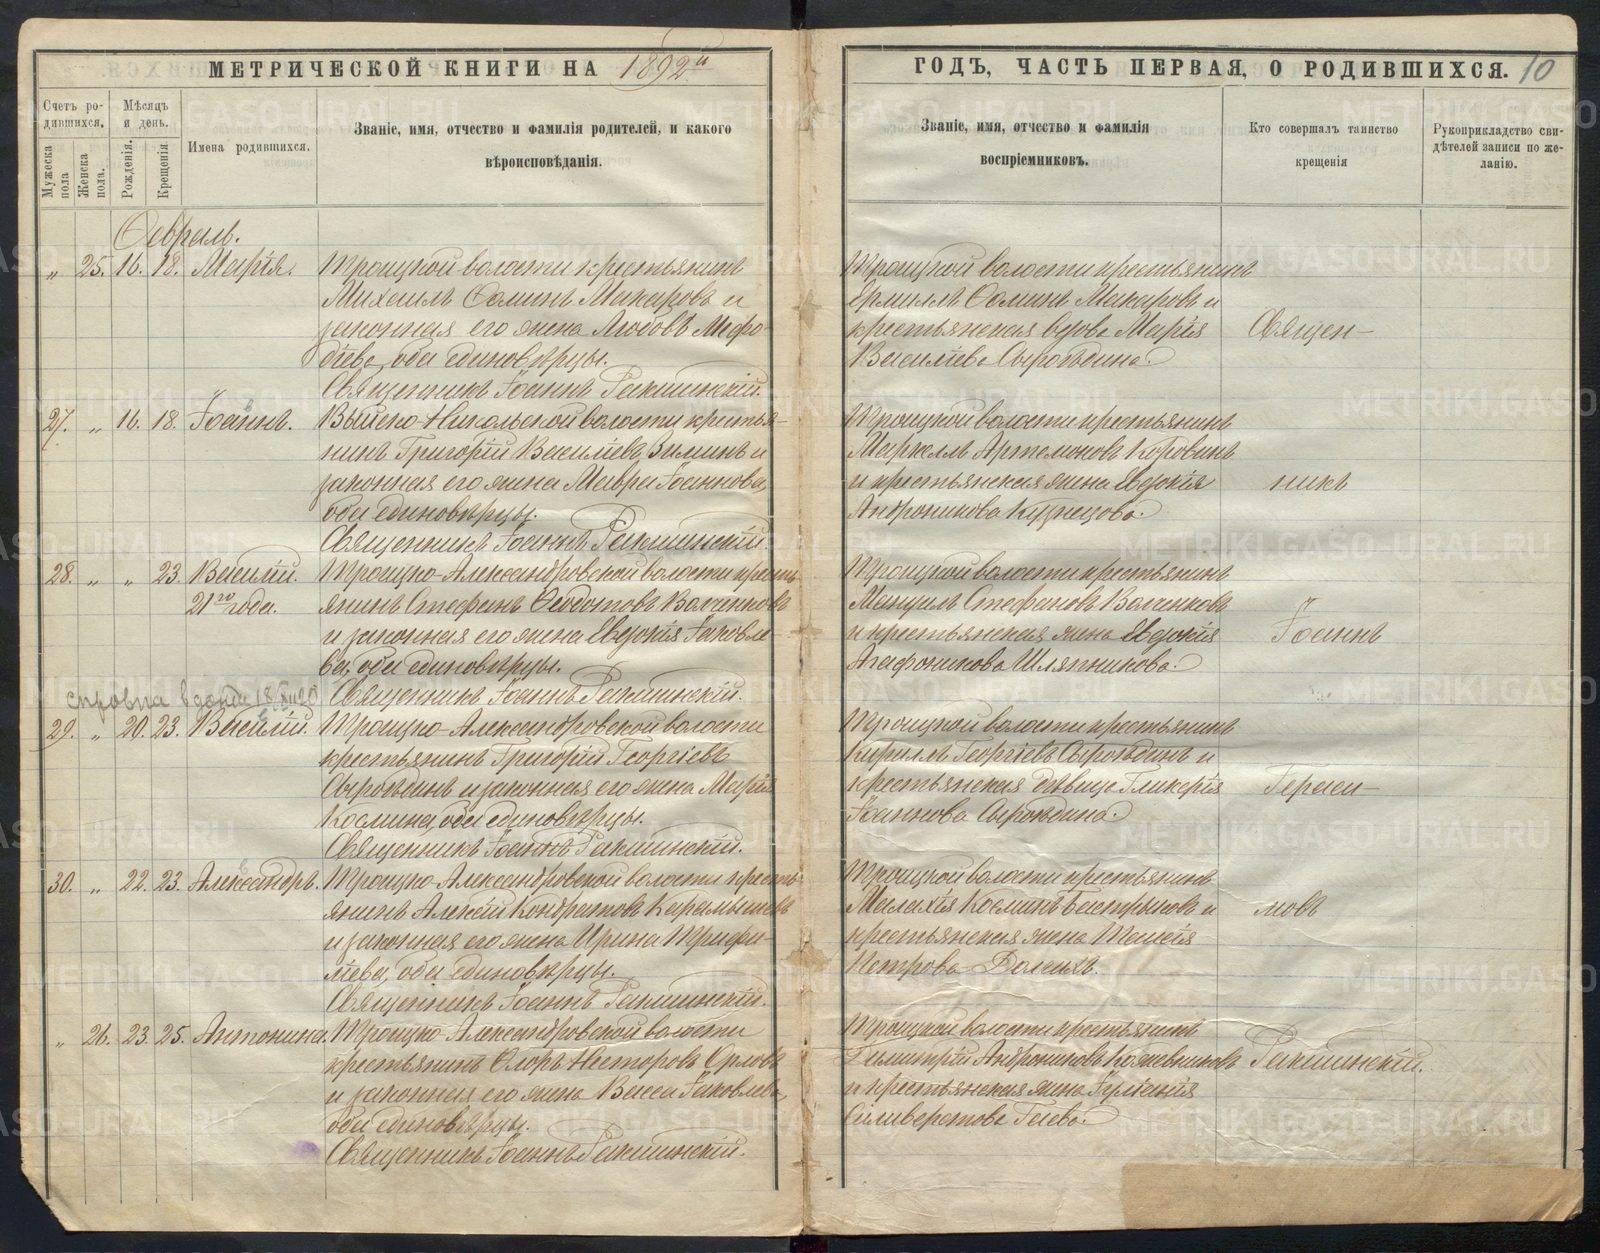 МЕТРИЧЕСКОЙ КНИГИ НА 1892й
ГОДЪ, ЧАСТЬ ПЕРВАЯ, О РОДИВШИХСЯ. 10
Счетъ ро-
дившихся.
Мужеска пола
Женска пола.
Мѣсяцъ
и день.
Рожденія.
Крещенія
Имена родившихся.
Званіе, имя, отчество и фамилія родителей, и какого
вѣроисповѣданія.
Званіе, имя, отчество и фамилія
воспріемниковъ.
Кто совершалъ таинство
крещенія
Рукоприкладство сви-
дѣтелей записи по же-
ланію.
Февраль.
„ 25. 16. 18. Марія.
Троицкой волости крестьянинъ
Михаилъ Ѳоминъ Макаровъ и
законная его жена Любовь Меѳо-
діева, оба единовѣрцы.
Священникъ Іоаннъ Ракшинскій.
Троицкой волости крестьянинъ
Ермилъ Ѳоминъ Макаровъ и
крестьянская вдова Марія
Василіева Сыропѣина.
27. „ 16. 18. Іоаннъ.
Выйско-Никольской волости крестья-
нинъ Григорій Василіевъ Зиминъ и
законная его жена Мавра Іоаннова,
оба единовѣрцы.
Священникъ Іоаннъ Ракшинскій.
Троицкой волости крестьянинъ
Маркеллъ Артемоновъ Коровинъ
и крестьянская жена Евдокія
Андроникова Кузнецова.
28. „ „ 23. Василій.
21го года.
Троицко-Александровской волости кресть-
янинъ Стефанъ Ѳеодотовъ Волченковъ
и законная его жена Евдокія Іаковле-
ва, оба единовѣрцы.
Священникъ Іоаннъ Ракшинскій.
Троицкой волости крестьянинъ
Мануилъ Стефановъ Волченковъ
и крестьянская жена Евдокія
Агафоникова Шляпникова.
справка
29. „ 20. 23. Василій.
Троицко-Александровской волости
крестьянинъ Григорій Георгіевъ
Сыропѣинъ и законная его жена Марія
Космина, оба единовѣрцы.
Священникъ Іоаннъ Ракшинскій.
Троицкой волости крестьянинъ
Кириллъ Георгіевъ Сыропѣинъ и
крестьянская дѣвица Гликерія
Іоаннова Сыропѣина.
30. „ 22. 23. Александръ.
Троицко-Александровской волости кресть-
янинъ Алексій Кондратовъ Карамышевъ
и законная его жена Ирина Трифи-
ліева, оба единовѣрцы.
Священникъ Іоаннъ Ракшинскій.
Троицкой волости крестьянинъ
Малахія Косминъ Бастрыковъ и
крестьянская жена Таисія
Петрова Долгихъ.
„ 26. 23. 25. Антонина.
Троицко-Александровской волости
крестьянинъ Флоръ Несторовъ Орловъ
и законная его жена Васса Іаковлева,
оба единовѣрцы.
Священникъ Іоаннъ Ракшинскій.
Троицкой волости крестьянинъ
Димитрій Андрониковъ Кожевниковъ
и крестьянская жена Іуліанія
Сильверстова Гаева.
Священ-
никъ
Іоаннъ
Гераси-
мовъ
Ракшинскій.
METRIKI.GASO-URAL.RU